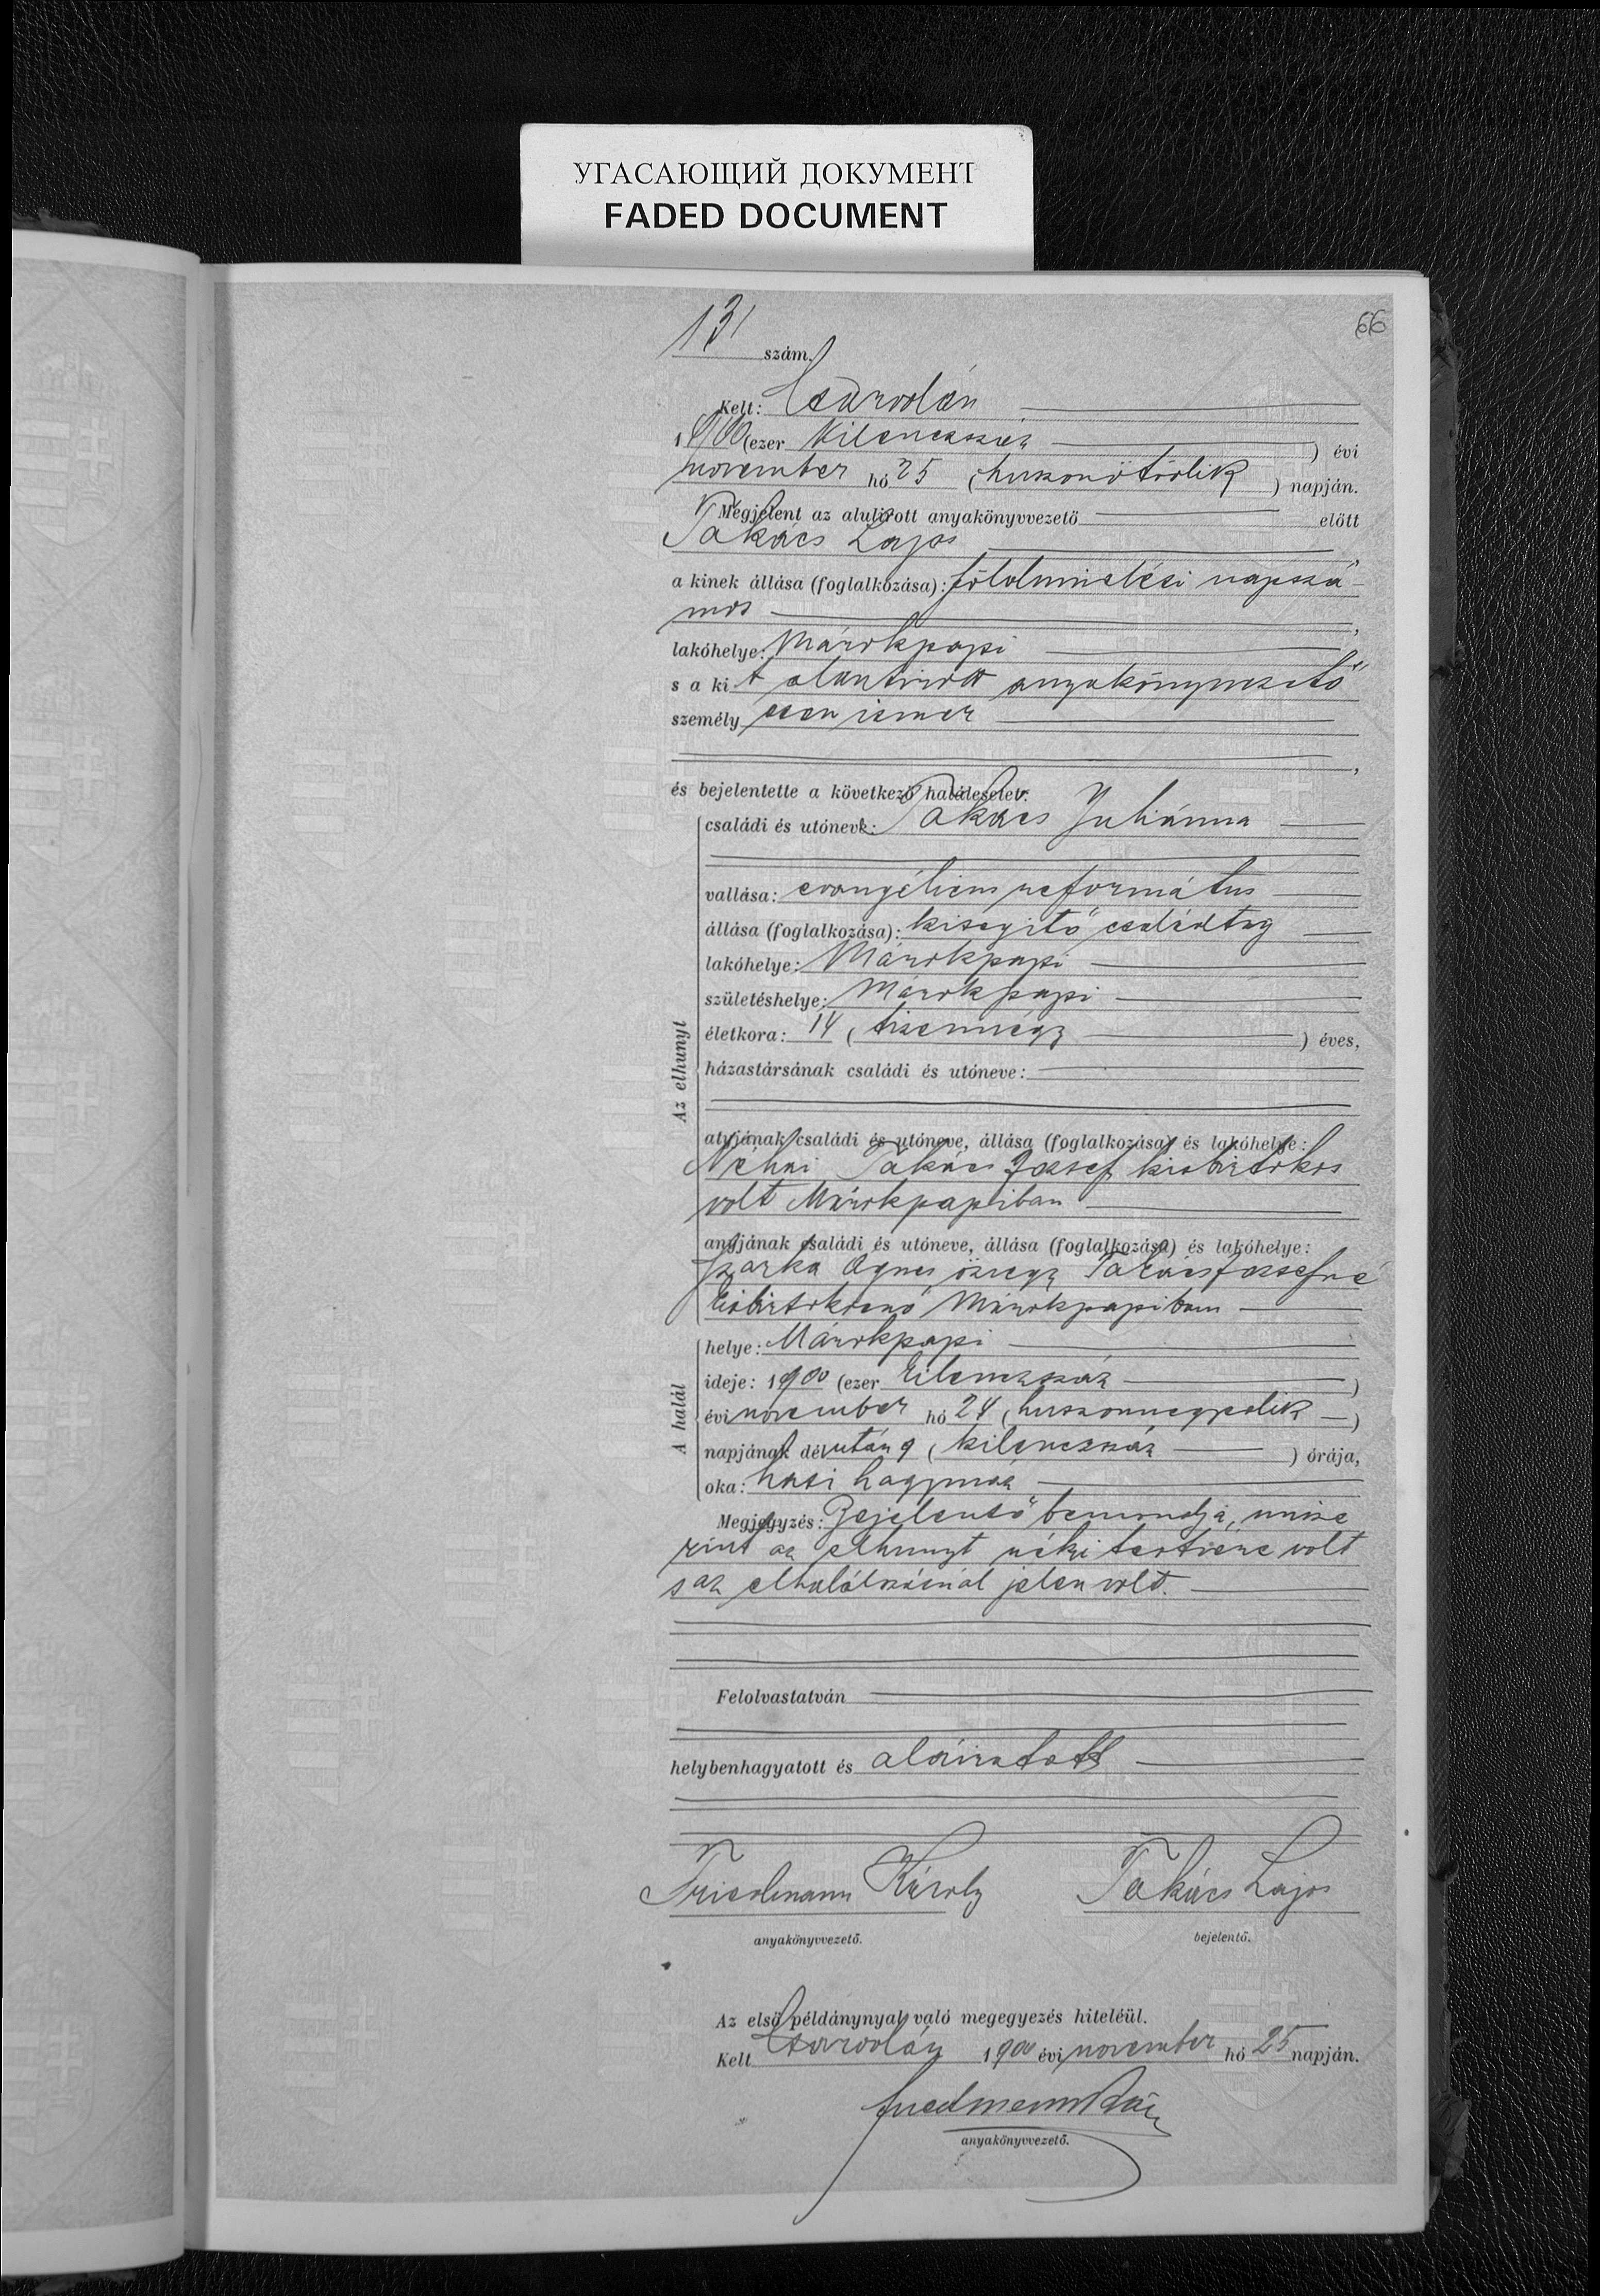 УГАСАЮЩИЙ ДОКУМЕНТ
FADED DOCUMENT
66
131 szám.
Kelt: Csarodán
1900 (ezer kilenczszáz) évi
november hó 25 (huszonötödik) napján.
Megjelent az alulirott anyakönyvvezető előtt
Takács Lajos,
a kinek állása (foglalkozása): földmivelési napszá-
mos,
lakóhelye: Márokpapi
s a kit alantirott anyakönyvvezető
személyesen ismer
,
és bejelentette a következő halálesetet:
Az elhunyt
családi és utóneve: Takács Juliánna
vallása: evangélicus református
állása (foglalkozása): kisegitő családtag
lakóhelye: Márokpapi
születéshelye: Márokpapi
életkora: 14 (tizennégy) éves,
házastársának családi és utóneve:
atyjának családi és utóneve, állása (foglalkozása) és lakóhelye:
Néhai Takács József kisbirtokos
volt Márokpapiban
anyjának családi és utóneve, állása (foglalkozása) és lakóhelye:
Ágnes özvegy Takács Józsefné
kisbirtokosnő Márokpapiban
A halál
helye: Márokpapi
ideje: 1900 (ezer kilenczszáz)
évi november hó 24 (huszonnegyedik)
napjának délután 9 () órája,
oka: hasi hagymáz
Megjegyzés: Bejelentő bemondja, misze
rint az elhunyt néki testvére volt
s az elhalálozásnál jelen volt.
Felolvastatván
helybenhagyatott és aláiratott
Friedmann Károly Takács Lajos
anyakönyvvezető. bejelentő.
Az első példánynyal való megegyezés hiteléül.
Kelt Csarodán 1900 évi november hó 25 napján.
Friedmann Károly
anyakönyvvezető.